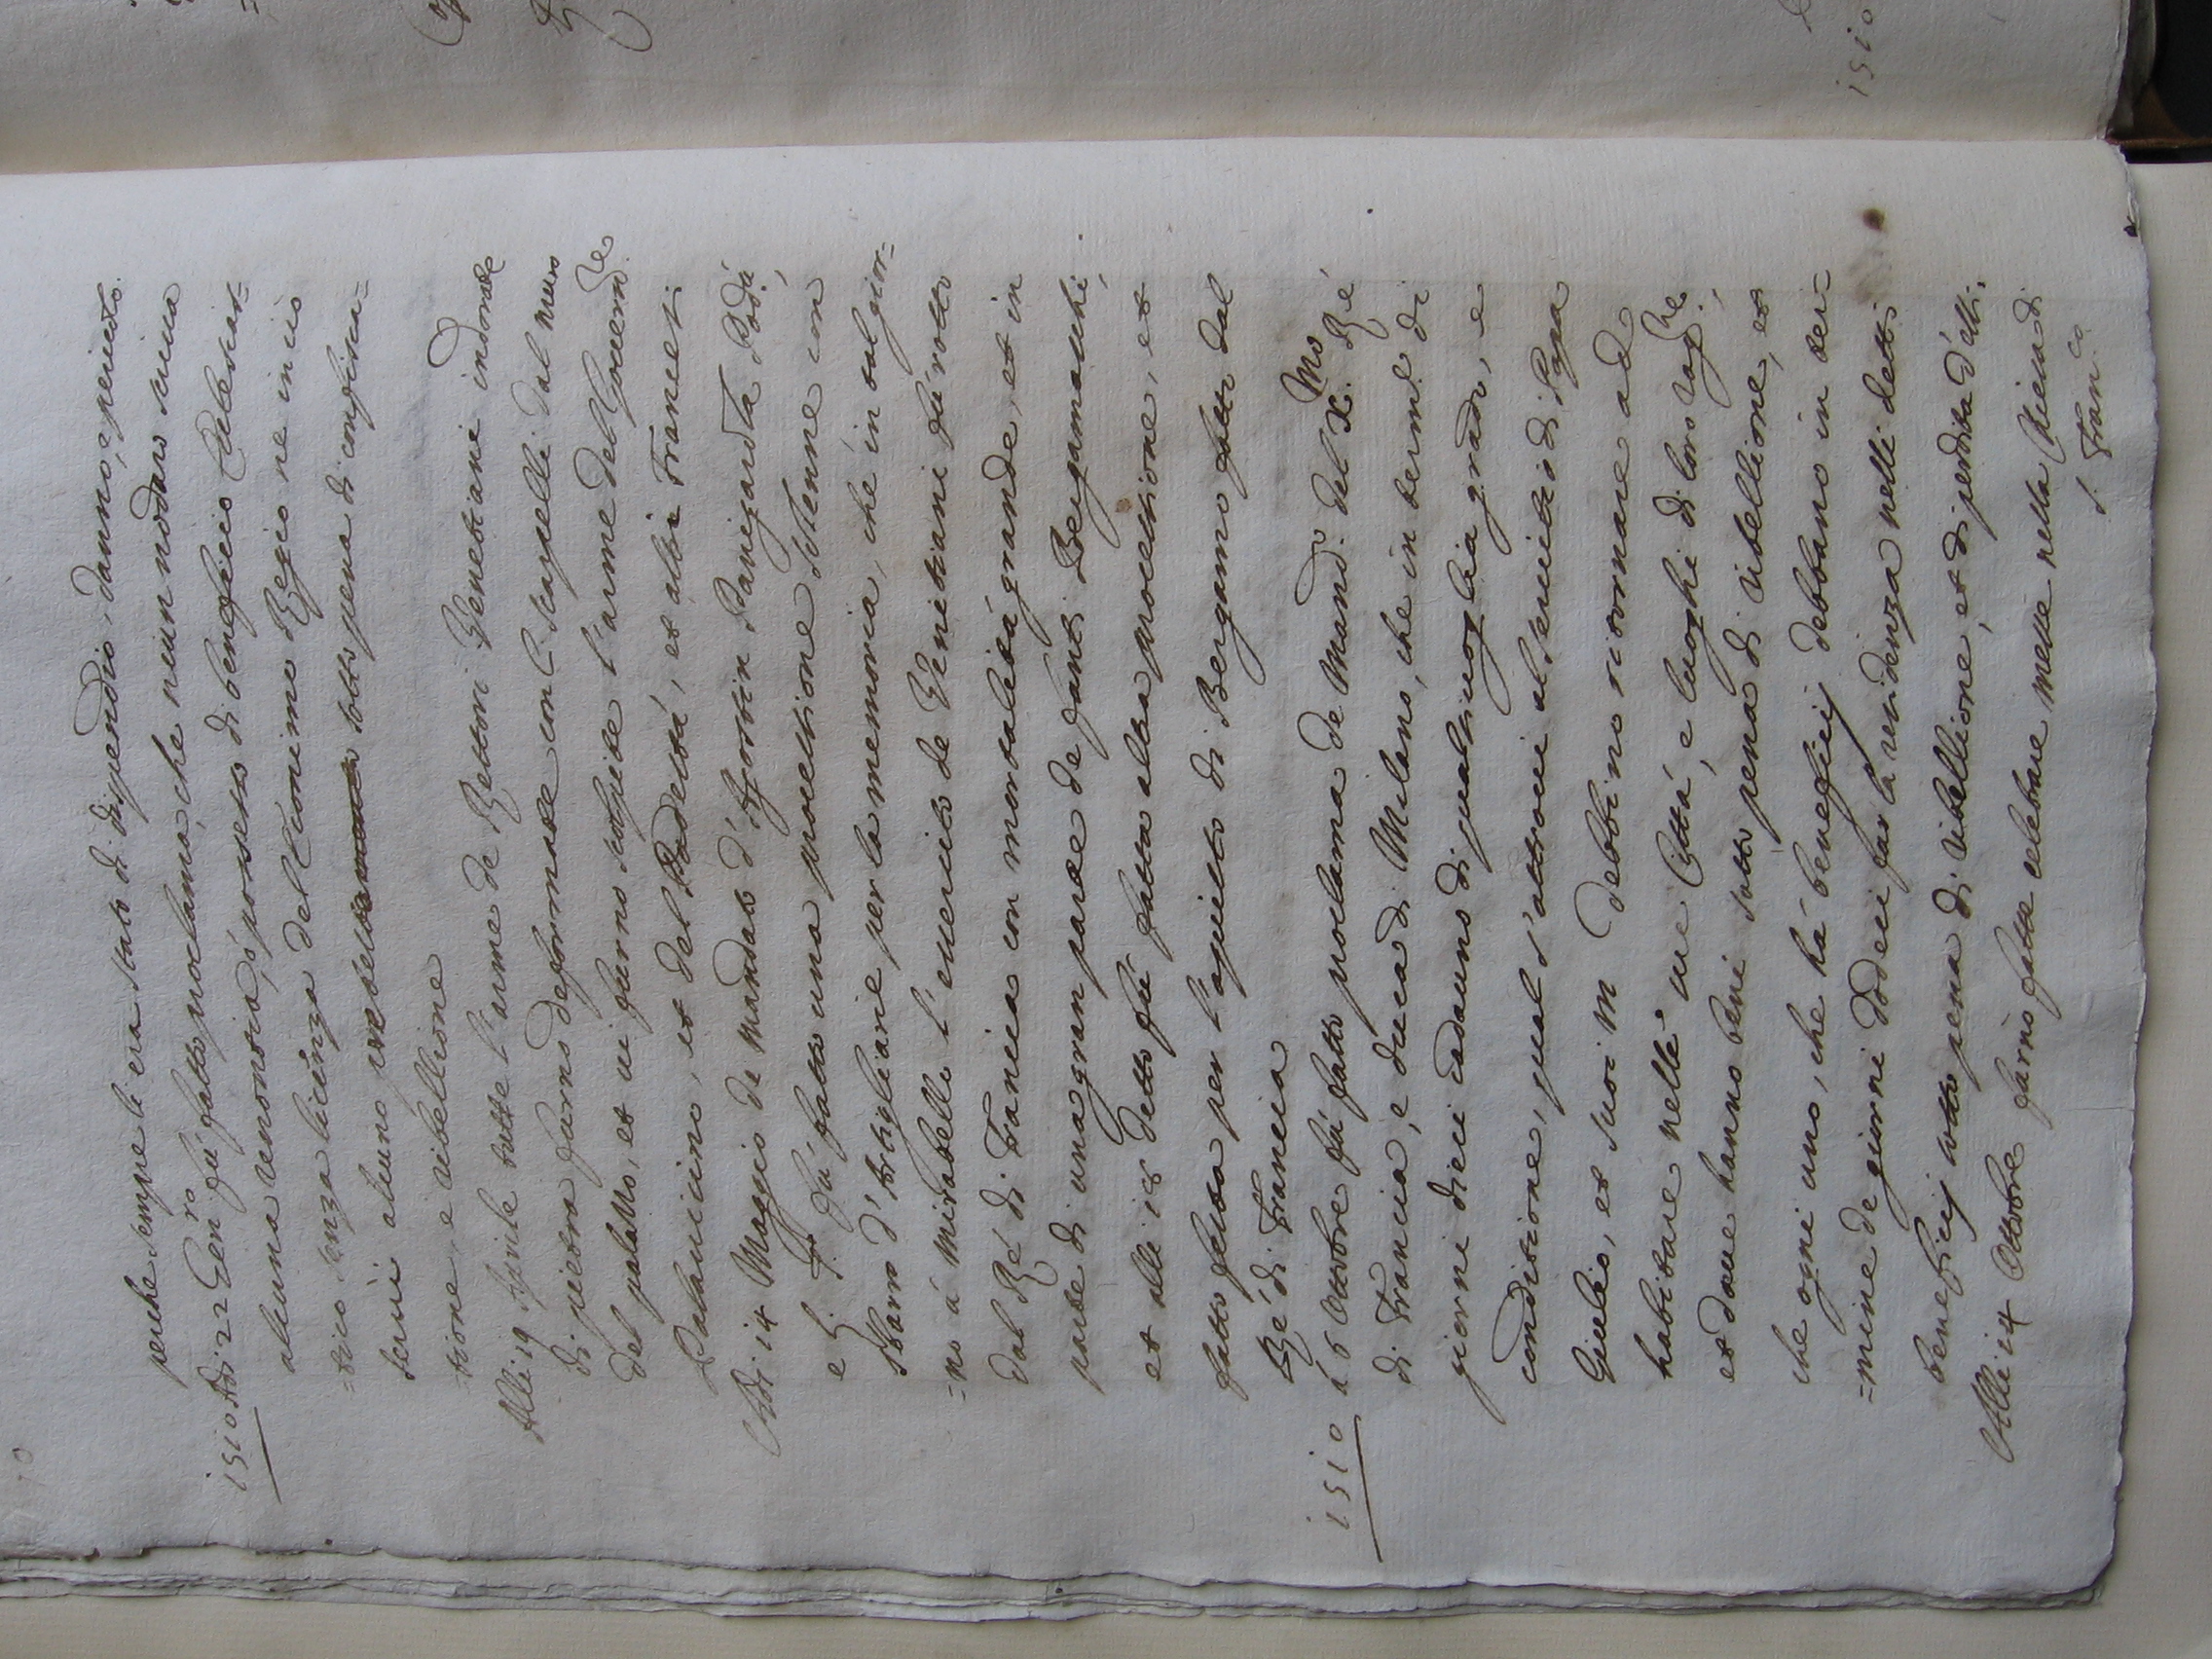 perche sempre li era stato di dispendio, danno, e pericolo.
1510 Adi 22 Gen.ro fù fatto proclama, che neun nodaro scriva
alcuna renontia, ò possesso di beneficio Eclesias=
=tico senza licenza dell'Economo Regio ne in ciò
servi alcuno sotto pena di confisca=
=tione, e ribellione
Alli 19 Aprile tutte l'arme de Rettori Venetiani indorate
di pietra furno deformate con li scarpelli dal muro
del palazzo, et vi furno scolpite l'arme del Governa.re
Palavicino, et del Podestà, et altri Francesi
Adi 14 Maggio de mandato d'Agostin Panigarola Podà,
e fù fatto una processione solenne con
sbarro d'Artigliarie per la memoria, che in tal gior=
=no à Mirabello l'esercito de Venetiani fù rotto
dal Rè di Francia con mortalità grande, et in
parte di una gran parte de fanti Bergamaschi,
et alli 18 detto fù fatta altra processione, et
fatto festa per l'aquisto di Bergamo fatto dal
Rè di Francia
1510 à 6 Ottobre fù fatto proclama de Mand.o del X.Mo Rè
di Francia, e duca di Milano, che in termine di
giorni dieci cadauno di qualsivoglia grado, e
conditione, qual s'attrovi al servitio di Papa
Giulio, et suoi debbino ritornare ad
habitare nelle sue Città, e luoghi di loro
et dove hanno beni sotto pena di ribellione, et
che ogni uno, che hà beneficij debbano in ter=
=mine de giorni dodeci far la residenza nelli detti
beneficij sotto pena di ribellione, et di perdita d'essi.
Alli 14 Ottobre farno fatte celebrare messe nella Chiesa di
S. Fran.co
1510